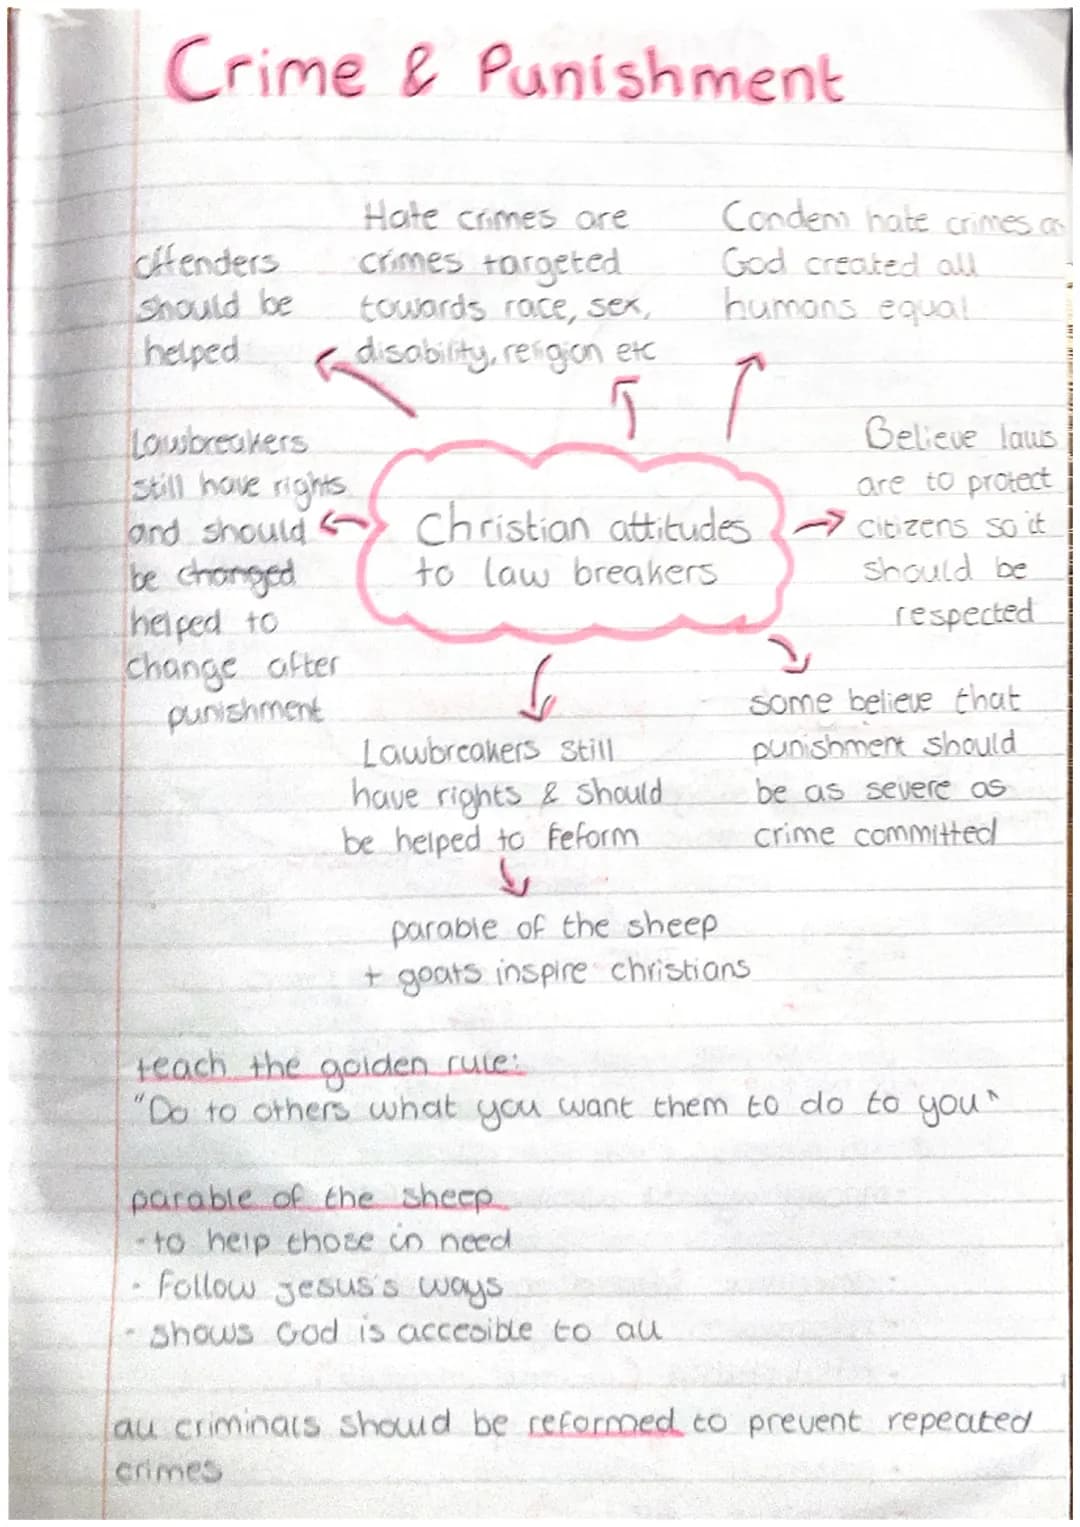 Crime & Punishment
offenders
should be
helped
Hate crimes are
crimes targeted
towards race, sex,
disability, religion etc
Condem hate crimes as
God created all
humans equal
Lawbreakers
still have rights
and should
be changed
helped to
change after
punishment
Christian attitudes
to law breakers
Believe laws
are to protect
citizens so it
should be
respected
Lawbreakers still
have rights & should
be helped to reform
some believe that
punishment should
be as severe as
crime committed
parable of the sheep
+ goats inspire christians
teach the golden rule:
"Do to others what you want them to do to you"
parable of the sheep
- to help those in need
- Follow Jesus's ways
- shows God is accesible to all
all criminals should be reformed to prevent repeated
crimes